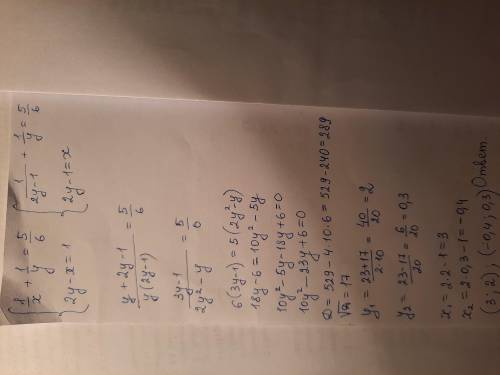 { 1/x + 1/y = 5/6   { 1/(2y-1) + 1/y = 5/6
{ 2y-x=1   { 2y-1=x
(y+2y-1)/(y(2y-1)) = 5/6
(3y-1)/(2y²-y) = 5/6
6(3y-1)=5(2y²y)
18y-6=10y²-5y
10y²-5y-18y+6=0
10y²-23y+6=0
D=529-4·10·6=529-240=289
√D=17
y₁ = (23+17)/(2·10) = 40/20 = 2
y₂ = (23-17)/20 = 6/20 = 0,3
x₁=2·2-1=3
x₂=2·0,3-1=-0,4
(3;2), (-0,4;0,3) Ответ.